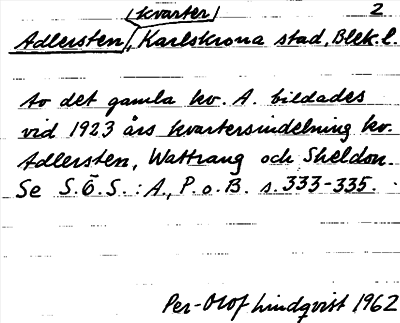 /kvarter/ 2
Adlersten, Karlskrona stad, Blek. l.
Av det gamla kv. A. bildades
vid 1923 års kvartersindelning kv.
Adlersten, Wattrang och Sheldon.
Se S.Ö.S.: A., P. o. B. s. 333-335.
Per-Olof Lindqvist 1962